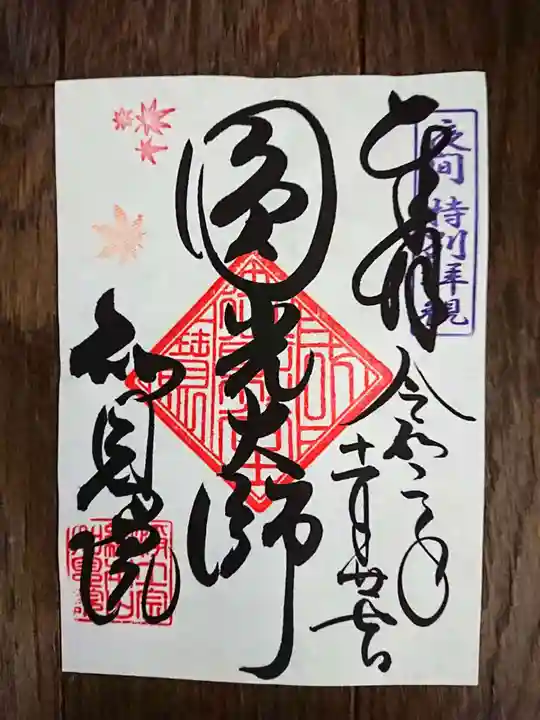 夜間特別拝観
奉拝
令和二年
十一月廿七日
圓光大師
知恩院